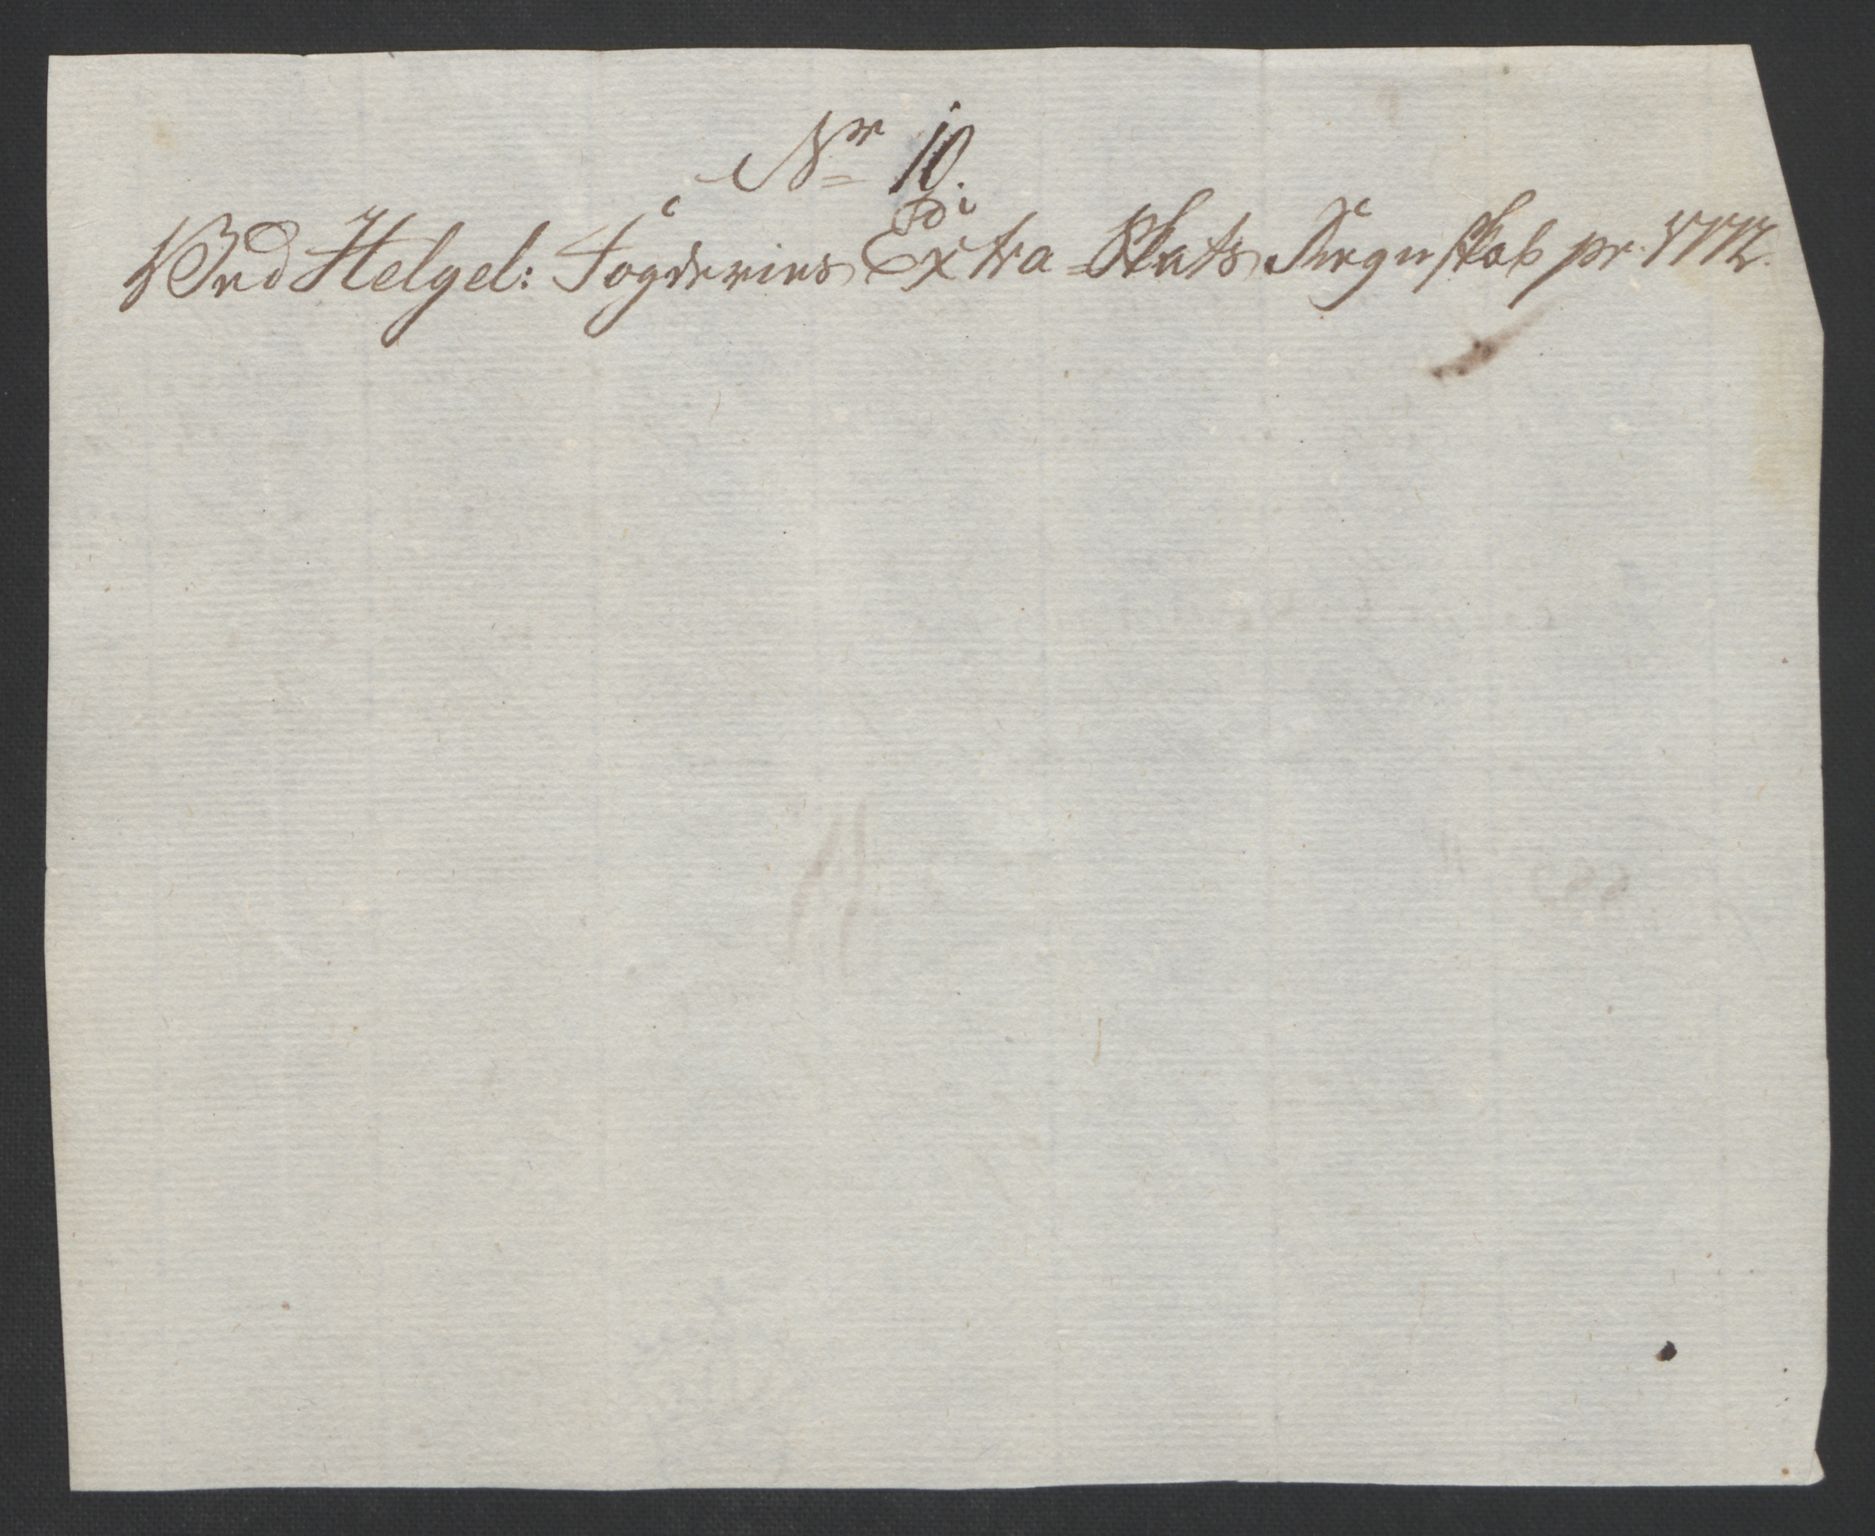 Nr 10.
Ved Helgel: Fogderies Extra Skatt Regnskab pr. 1772.